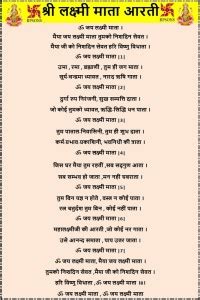 श्री लक्ष्मी माता आरती
ॐ जय लक्ष्मी माता ।
मैया जय लक्ष्मी माता तुमको निशदिन सेवत ।
मैया जी को निशदिन हरि विष्णु विधाता ।
ॐ जय लक्ष्मी माता [1]
उमा , रमा , ब्रह्माणी , तुम ही जग माता ।
सूर्य चन्द्रमा ध्यावत , नारद ऋषि गाता ।
ॐ जय लक्ष्मी माता [2]
दुर्गा रूप निरंजनी, सुख सम्पत्ति दाता ।
जो कोई तुमको ध्यावत , ऋद्धि-सिद्धि धन पाता ।
ॐ जय लक्ष्मी माता [3]
तुम पाताल-निवासिनी, तुम ही शुभ दाता ।
कर्म प्रभाव प्रकाशिनी, भवनिधी की त्राता ।
ॐ जय लक्ष्मी माता [4]
जिस घर मैया तुम रहती ,सब सद्गुण आता ।
सब सम्भव हो जाता ,मन नहीं घबराता ।
ॐ जय लक्ष्मी माता [5]
तुम बिन यज्ञ न होते , वस्त्र न कोई पाता ।
रत्न चतुर्दश तुम बिन , कोई नहीं पाता ।
ॐ जय लक्ष्मी माता [6]
महालक्ष्मीजी की आरती ,जो कोई नर गाता ।
उर्स आनन्द समाता , पाप उतर जाता ।
ॐ जय लक्ष्मी माता [7]
ॐ जय लक्ष्मी माता, मैया जय लक्ष्मी माता ।
तुमको निशदिन सेवत ,मैया जी को निशदिन सेवत ।
हरि विष्णु विधाता ,ॐ जय लक्ष्मी माता [8]
ॐ जय लक्ष्मी माता , ॐ जय लक्ष्मी माता